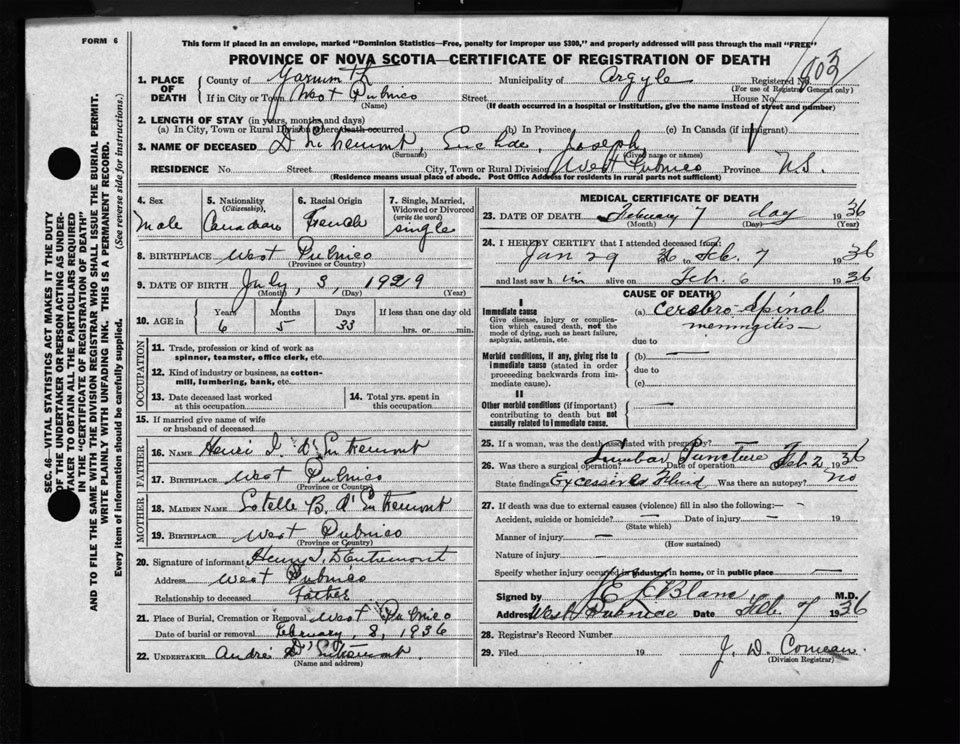 FORM 6
This form if placed in an envelope, marked "Dominion Statistics—Free, penalty for improper use $300," and properly addressed will pass through the mail "FREE"
PROVINCE OF NOVA SCOTIA—CERTIFICATE OF REGISTRATION OF DEATH
1. PLACE OF DEATH County of Yarmouth Municipality of Argyle Registered No.
(For use of Registrar General only)
If in City or Town West Pubnico Street House No.
(Name) (If death occurred in a hospital or institution, give the name instead of street and number)
2. LENGTH OF STAY (in years, months and days)
(a) In City, Town or Rural Division where death occurred (b) In Province (c) In Canada (if immigrant)
3. NAME OF DECEASED D'Entremont, Joseph
(Surname) (Given name or names)
RESIDENCE No. Street City, Town or Rural Division West Pubnico Province N.S.
(Residence means usual place of abode. Post Office Address for residents in rural parts not sufficient)
4. Sex Male
5. Nationality (Citizenship) Canadian
6. Racial Origin French
7. Single, Married, Widowed or Divorced (write the word) single
8. BIRTHPLACE West Pubnico
(Province or Country)
9. DATE OF BIRTH July, 3, 1929
(Month) (Day) (Year)
10. AGE in Years Months Days If less than one day old
6 5 33 hrs. or min.
OCCUPATION
11. Trade, profession or kind of work as spinner, teamster, office clerk, etc.
12. Kind of industry or business, as cotton-mill, lumbering, bank, etc.
13. Date deceased last worked at this occupation
14. Total yrs. spent in this occupation
15. If married give name of wife or husband of deceased
FATHER
16. NAME Henri I. D'Entremont
17. BIRTHPLACE West Pubnico
(Province or Country)
MOTHER
18. MAIDEN NAME B. d'Entremont
19. BIRTHPLACE West Pubnico
(Province or Country)
20. Signature of informant Henry I. D'Entremont
Address West Pubnico
Relationship to deceased Father
21. Place of Burial, Cremation or Removal West Pubnico
Date of burial or removal February, 8, 1936
22. UNDERTAKER André D'Entremont
(Name and address)
MEDICAL CERTIFICATE OF DEATH
23. DATE OF DEATH February 7 day 1936
(Month) (Day) (Year)
24. I HEREBY CERTIFY that I attended deceased from:
Jan 29 1936 to Feb. 7 1936
and last saw him alive on Feb. 6 1936
CAUSE OF DEATH
I
Immediate cause
Give disease, injury or complication which caused death, not the mode of dying, such as heart failure, asphyxia, asthenia, etc.
(a) Cerebro-Spinal meningitis
due to
Morbid conditions, if any, giving rise to immediate cause (stated in order proceeding backwards from immediate cause).
(b) —
due to
(c)
II
Other morbid conditions (if important) contributing to death but not causally related to immediate cause.
—
25. If a woman, was the death associated with pregnancy?
26. Was there a surgical operation? Lumbar Puncture Date of operation Feb. 2 1936
State findings Excessive Fluid Was there an autopsy? No
27. If death was due to external causes (violence) fill in also the following:—
Accident, suicide or homicide? — Date of injury — 19
(State which)
Manner of injury —
(How sustained)
Nature of injury —
Specify whether injury occurred in industry, in home, or in public place —
Signed by Blanc M.D.
Address West Pubnico Date Feb. 7 1936
28. Registrar's Record Number
29. Filed 19 J. D. Comeau
(Division Registrar)
SEC. 46—VITAL STATISTICS ACT MAKES IT THE DUTY
OF THE UNDERTAKER OR PERSON ACTING AS UNDER-
TAKER TO OBTAIN ALL THE PARTICULARS REQUIRED
IN THE "CERTIFICATE OF REGISTRATION OF DEATH"
AND TO FILE THE SAME WITH THE DIVISION REGISTRAR WHO SHALL ISSUE THE BURIAL PERMIT.
WRITE PLAINLY WITH UNFADING INK. THIS IS A PERMANENT RECORD.
Every item of information should be carefully supplied. (See reverse side for instructions.)